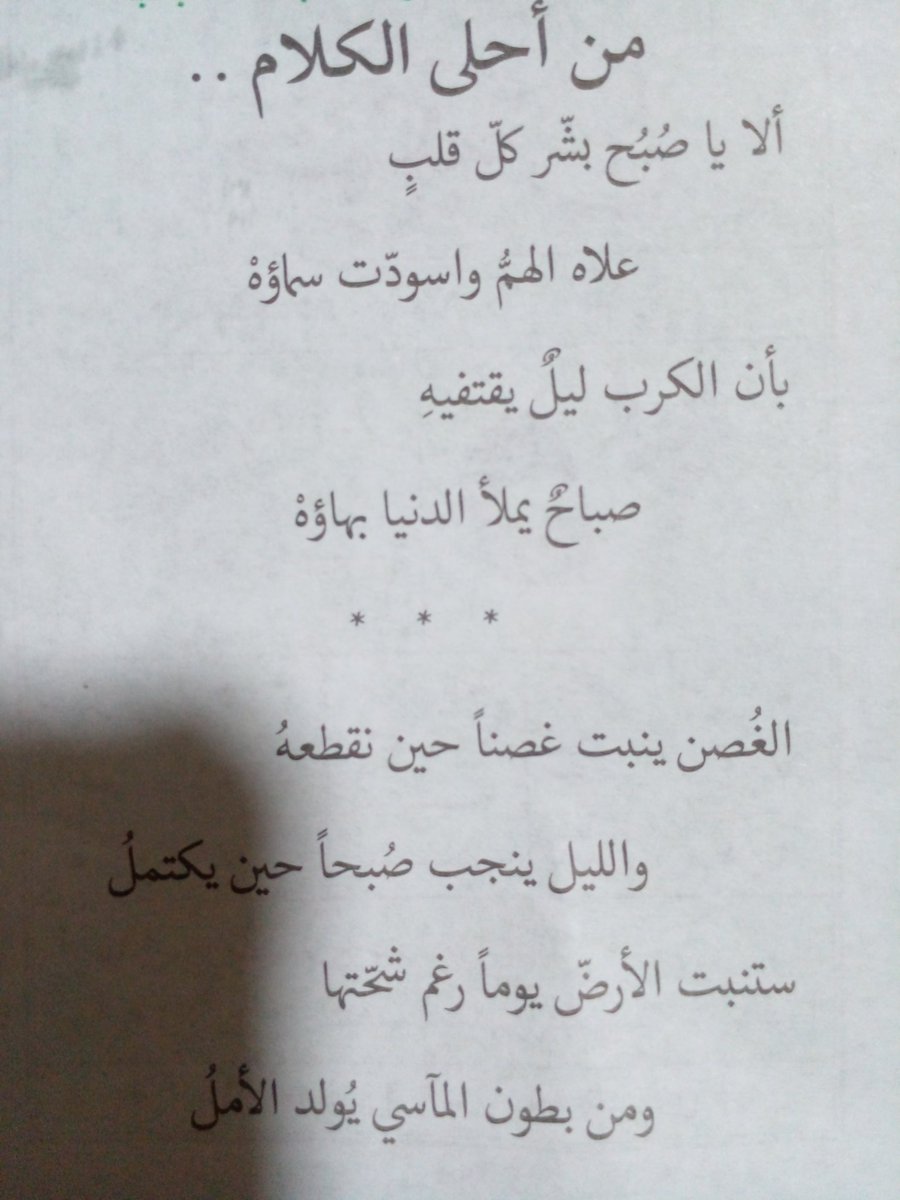 من أحلى الكلام ..
ألا يا صُبُح بشّر كلّ قلبٍ
علاه الهمُّ واسودّت سماؤهْ
بأن الكرب ليلٌ يقتفيهِ
صباحٌ يملأ الدنيا بهاؤهْ
* * *
الغُصن ينبت غصناً حين نقطعهُ
والليل ينجب صُبحاً حين يكتملُ
ستنبت الأرضّ يوماً رغم شحّتها
ومن بطون المآسي يُولد الأملُ